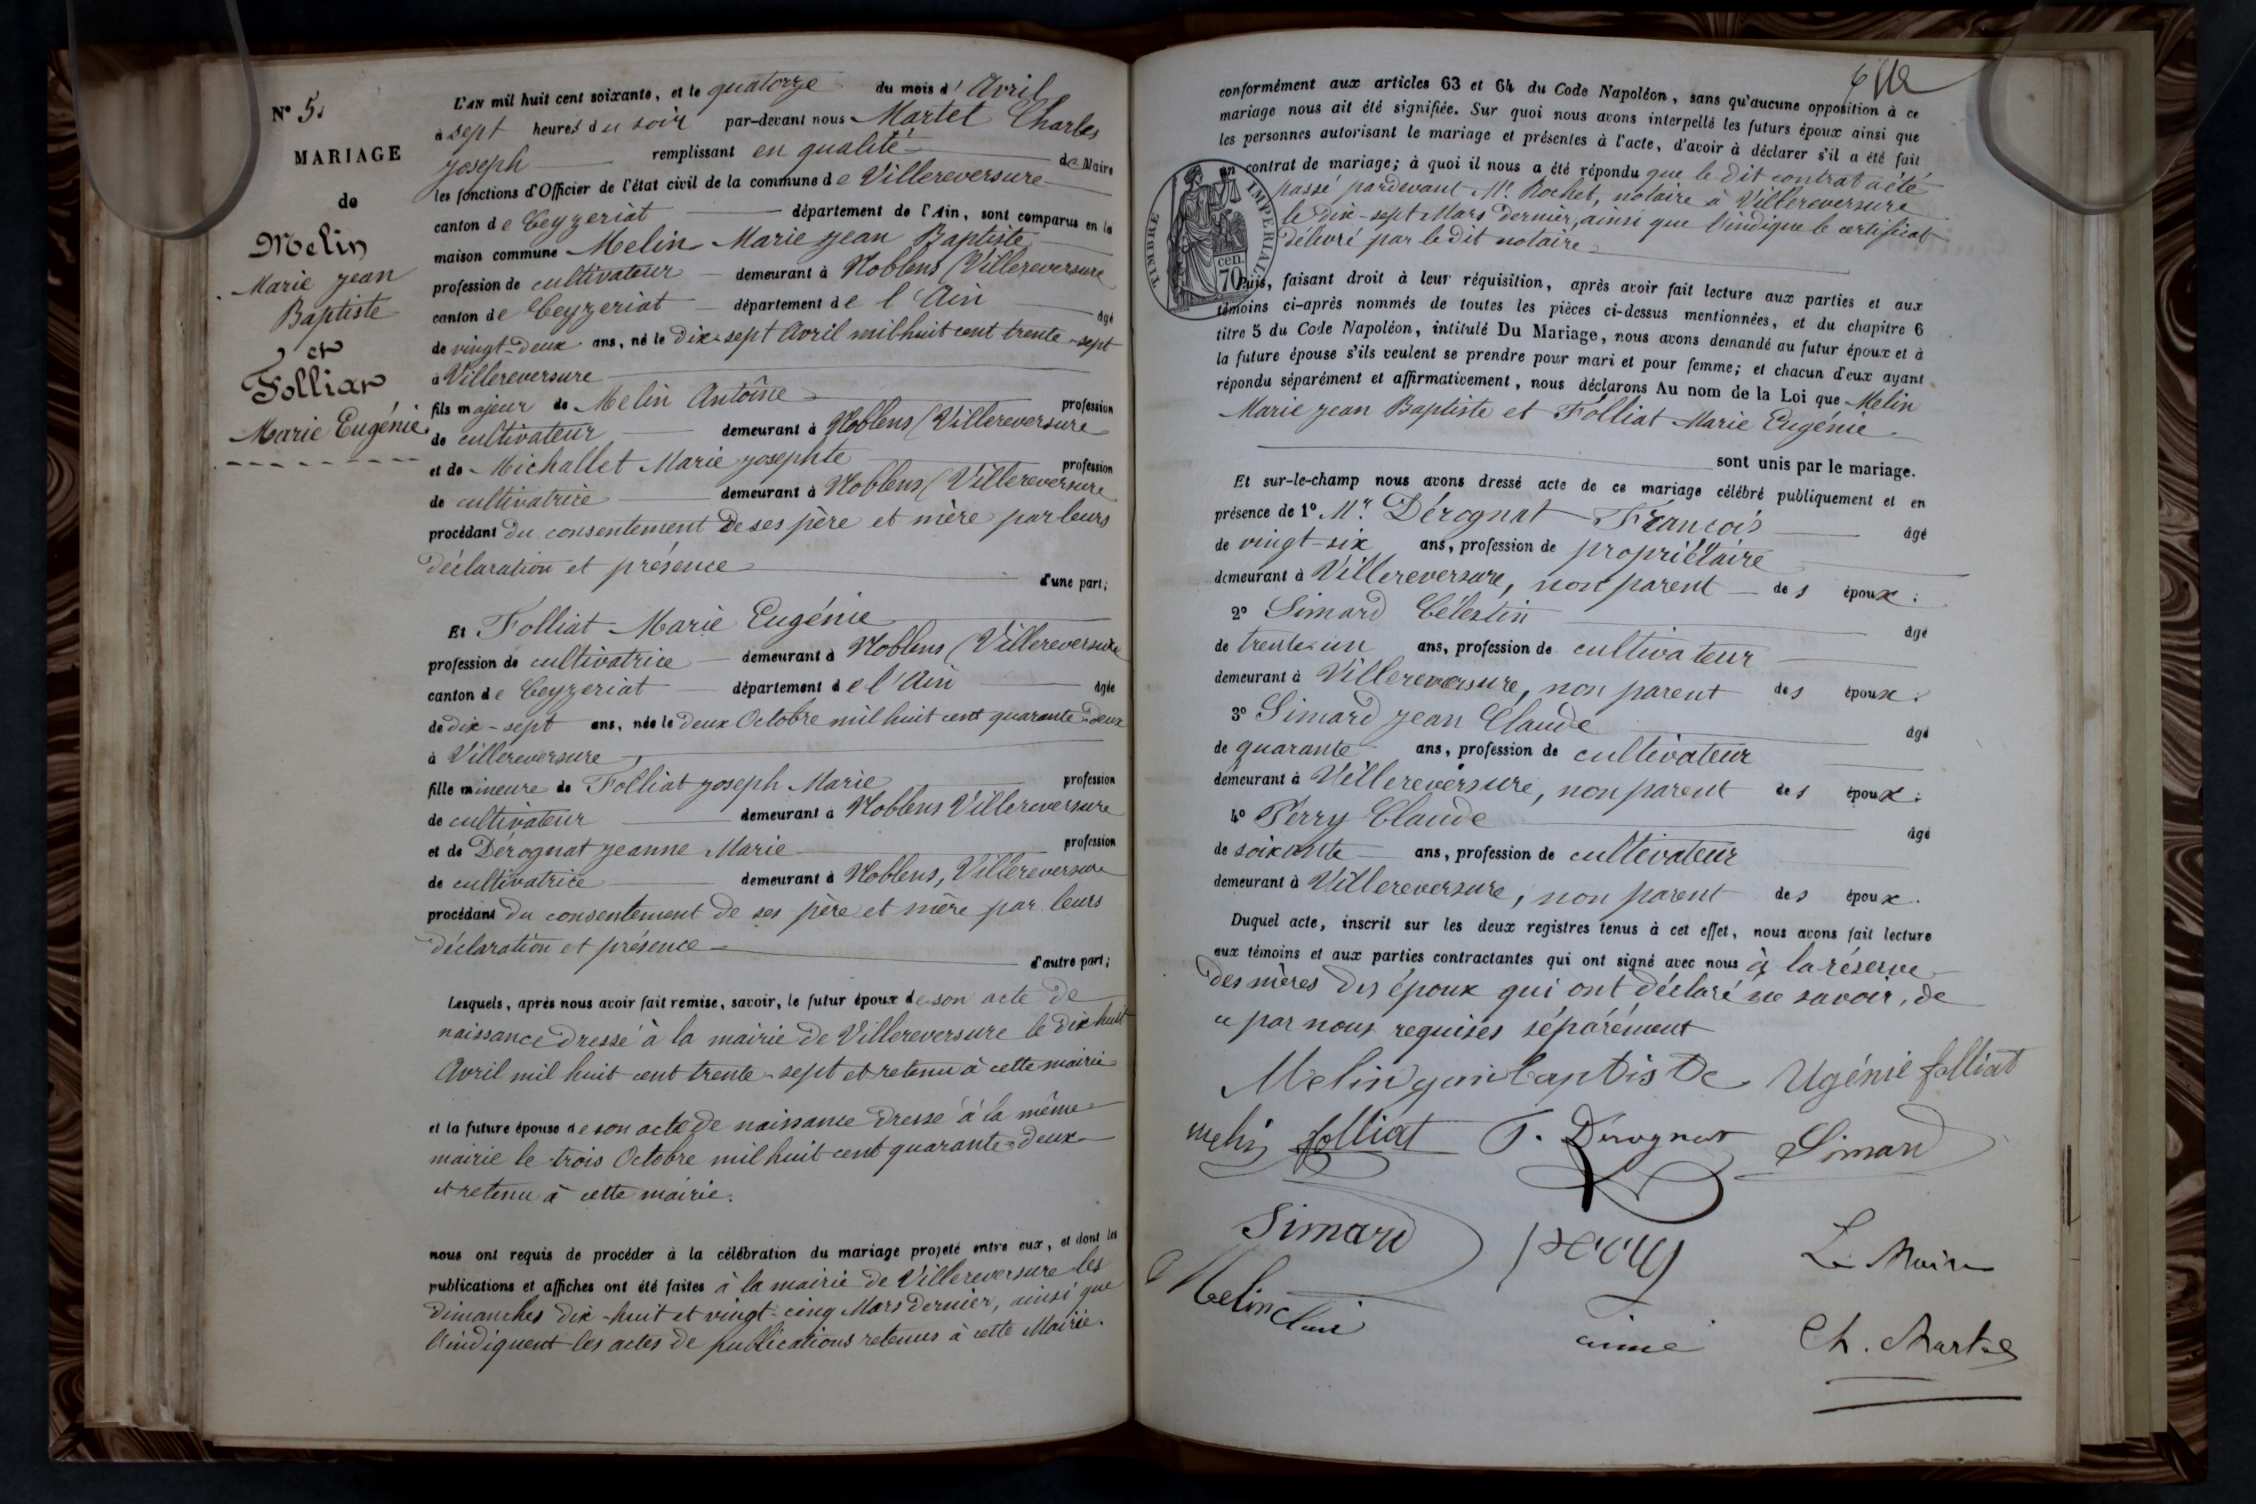 N° 5.
MARIAGE
de
Melin
Marie Jean
Baptiste
et
Folliat
Marie Eugénie
L'AN mil huit cent soixante, et le quatorze du mois d'Avril
à sept heures du soir par-devant nous Martel Charles
Joseph remplissant en qualité de Maire
les fonctions d'Officier de l'état civil de la commune de Villereversure
canton de Ceyzeriat département de l'Ain, sont comparus en la
maison commune Melin Marie Jean Baptiste
profession de cultivateur demeurant à Noblens (Villereversure
canton de Ceyzeriat département de l'Ain âgé
de vingt-deux ans, né le dix-sept Avril mil huit cent trente-sept
à Villereversure
fils majeur de Melin Antoine profession
de cultivateur demeurant à Noblens (Villereversure
et de Michallet Marie Josephte profession
de cultivatrice demeurant à Noblens (Villereversure
procédant du consentement de ses père et mère par leurs
déclaration et présence d'une part;
Et Folliat Marie Eugénie
profession de cultivatrice demeurant à Noblens (Villereversure
canton de Ceyzeriat département de l'Ain âgée
de dix-sept ans, née le deux Octobre mil huit cent quarante-deux
à Villereversure
fille mineure de Folliat Joseph Marie profession
de cultivateur demeurant à Noblens Villereversure
et de Dérognat Jeanne Marie profession
de cultivatrice demeurant à Noblens, Villereversure
procédant du consentement de ses père et mère par leurs
déclaration et présence d'autre part;
Lesquels, après nous avoir fait remise, savoir, le futur époux de son acte de
naissance dressé à la mairie de Villereversure le dix huit
Avril mil huit cent trente-sept et retenu à cette mairie
et la future épouse de son acte de naissance dressé à la même
mairie le trois Octobre mil huit cent quarante-deux
et retenu à cette mairie.
nous ont requis de procéder à la célébration du mariage projeté entre eux, et dont les
publications et affiches ont été faites à la mairie de Villereversure les
dimanches dix-huit et vingt-cinq Mars dernier, ainsi que
l'indiquent les actes de publications retenus à cette Mairie.
conformément aux articles 63 et 64 du Code Napoléon, sans qu'aucune opposition à ce
mariage nous ait été signifiée. Sur quoi nous avons interpellé les futurs époux ainsi que
les personnes autorisant le mariage et présentes à l'acte, d'avoir à déclarer s'il a été fait
un contrat de mariage; à quoi il nous a été répondu que le dit contrat a été
passé pardevant Mr. Rochet, notaire à Villereversure
le dix-sept Mars dernier, ainsi que l'indique le certificat
délivré par le dit notaire
TIMBRE IMPERIAL
70 cen.
Puis, faisant droit à leur réquisition, après avoir fait lecture aux parties et aux
témoins ci-après nommés de toutes les pièces ci-dessus mentionnées, et du chapitre 6
titre 5 du Code Napoléon, intitulé Du Mariage, nous avons demandé au futur époux et à
la future épouse s'ils veulent se prendre pour mari et pour femme; et chacun d'eux ayant
répondu séparément et affirmativement, nous déclarons Au nom de la Loi que Melin
Marie Jean Baptiste et Folliat Marie Eugénie
sont unis par le mariage.
Et sur-le-champ nous avons dressé acte de ce mariage célébré publiquement et en
présence de 1° Mr. Dérognat François âgé
de vingt-six ans, profession de propriétaire
demeurant à Villereversure, non parent des époux;
2° Simard Célestin âgé
de trente-un ans, profession de cultivateur
demeurant à Villereversure, non parent des époux;
3° Simard Jean Claude âgé
de quarante ans, profession de cultivateur
demeurant à Villereversure, non parent des époux;
4° Perry Claude âgé
de soixante ans, profession de cultivateur
demeurant à Villereversure, non parent des époux.
Duquel acte, inscrit sur les deux registres tenus à cet effet, nous avons fait lecture
aux témoins et aux parties contractantes qui ont signé avec nous à la réserve
des mères des époux qui ont déclaré ne savoir, de
ce par nous requises séparément
Melin jean baptiste Ugénie folliat
melin folliat F. Dérognat Simard
Simard perry Le Maire
Melin aimé Ch. Martel